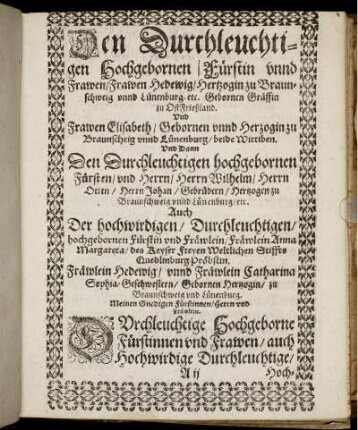 Den Durchleuchti-
gen Hochgebornen / Fürstin vnnd
Frawen / Frawen Hedewig / Hertzogin zu Braun-
schweig vnnd Lünenburg / etc. Gebornen Gräffin
zu OstFrießland.
Vnd
Frawen Elisabeth / Gebornen vnnd Herzogin zu
Braunscheig vnnd Lünenburg / beide Wittiben.
Vnd Dann
Den Durchleuchtigen hochgebornen
Fürsten / vnd Herrn / Herrn Wilhelm / Herrn
Otten / Herrn Johan / Gebrüdern / Hertzogen zu
Braunschweig vnnd Lünenburg / etc.
Auch
Der hochwirdigen / Durchleuchtigen /
hochgebornen Fürstin vnd Fräwlein / Fräwlein Anna
Margareta / des Keyser Freyen Weltlichen Stiffts
Quedlinburg Pröbstin.
Fräwlein Hedewig / vnnd Fräwlein Catharina
Sophia / Geschwestern / Gebornen Hertzogin / zu
Braunschweig vnd Lünenburg.
Meinen Gnedigen Fürstinnen / Herrn vnd
Fräwlein.
DVrchleuchtige Hochgeborne
Fürstinnen vnd Frawen / auch
Hochwirdige Durchleuchtige /
A ij Hoch-